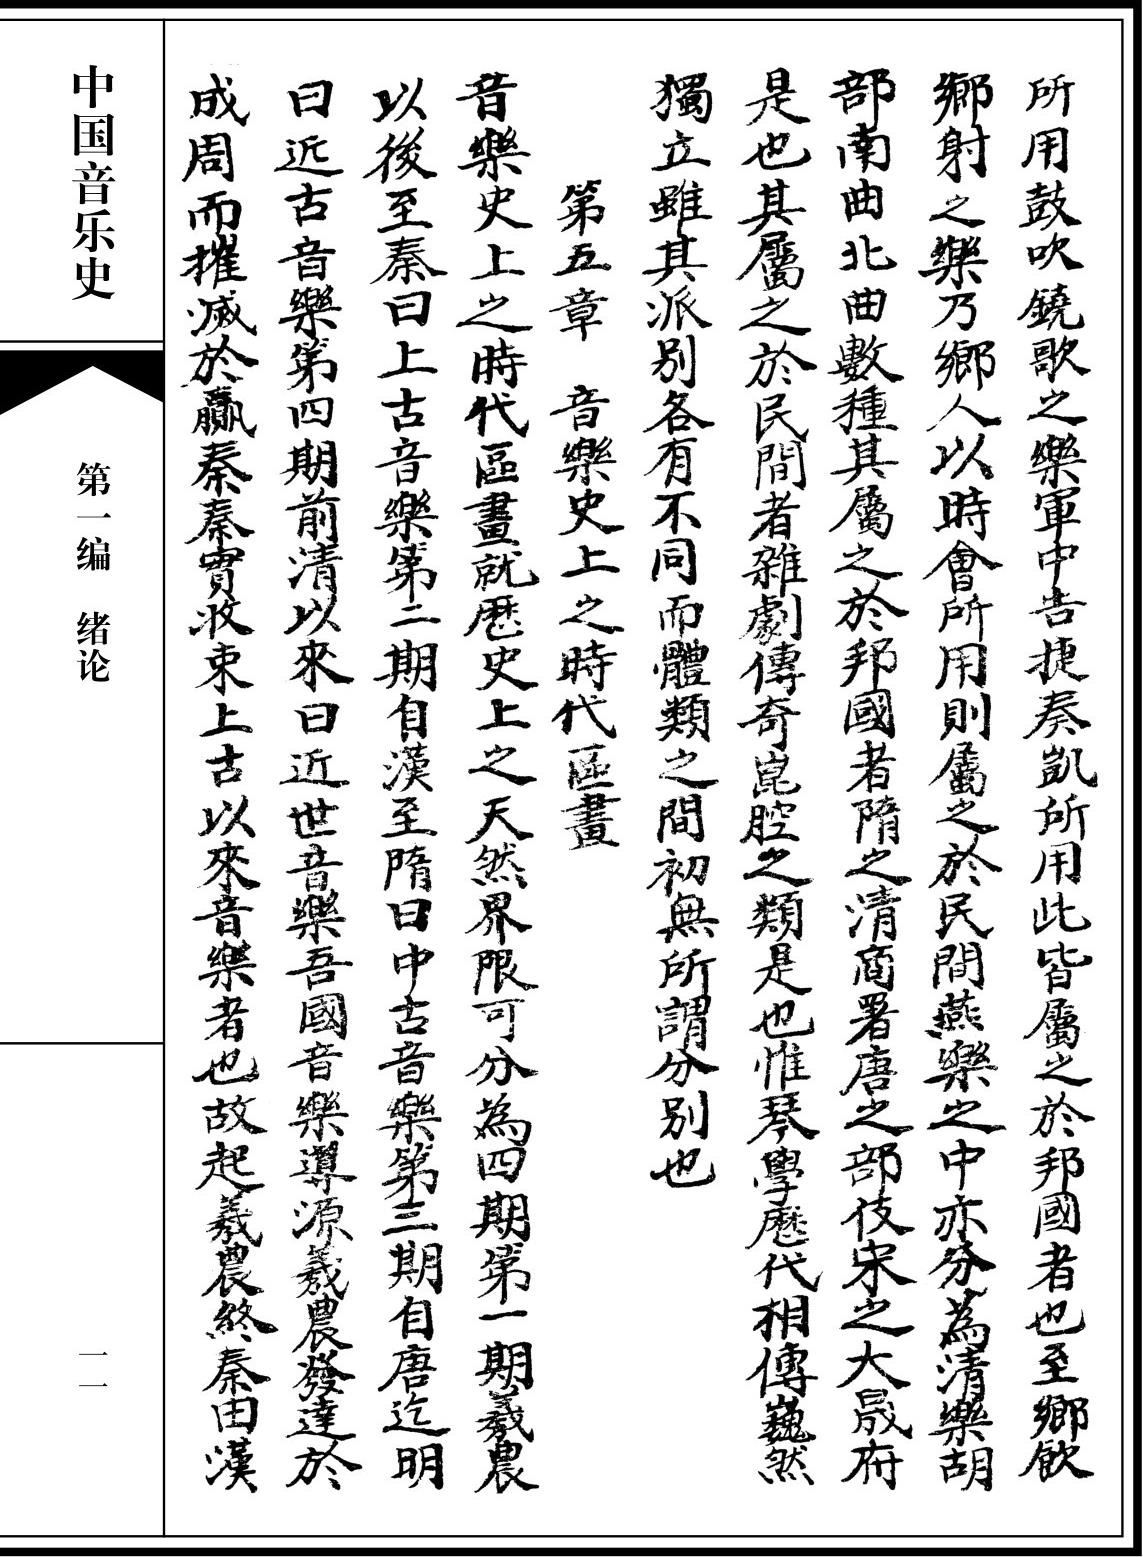 所用鼓吹鐃歌之樂軍中告捷奏凱所用此皆屬之於邦國者也至鄉飲
鄉射之樂乃鄉人以時會所用則屬之於民間燕樂之中亦分為清樂胡
部南曲北曲數種其屬之於邦國者隋之清商署唐之部伎宋之大晟府
是也其屬之於民間者雜劇傳奇崑腔之類是也惟琴學歷代相傳巍然
獨立雖其派別各有不同而體類之間初無所謂分別也
第五章　音樂史上之時代區畫
音樂史上之時代區畫就歷史上之天然界限可分為四期第一期羲農
以後至秦曰上古音樂第二期自漢至隋曰中古音樂第三期自唐迄明
曰近古音樂第四期前清以來曰近世音樂吾國音樂導源羲農發達於
成周而摧滅於贏秦秦實收束上古以來音樂者也故起羲農終秦由漢
中国音乐史
第一编　绪论
一一